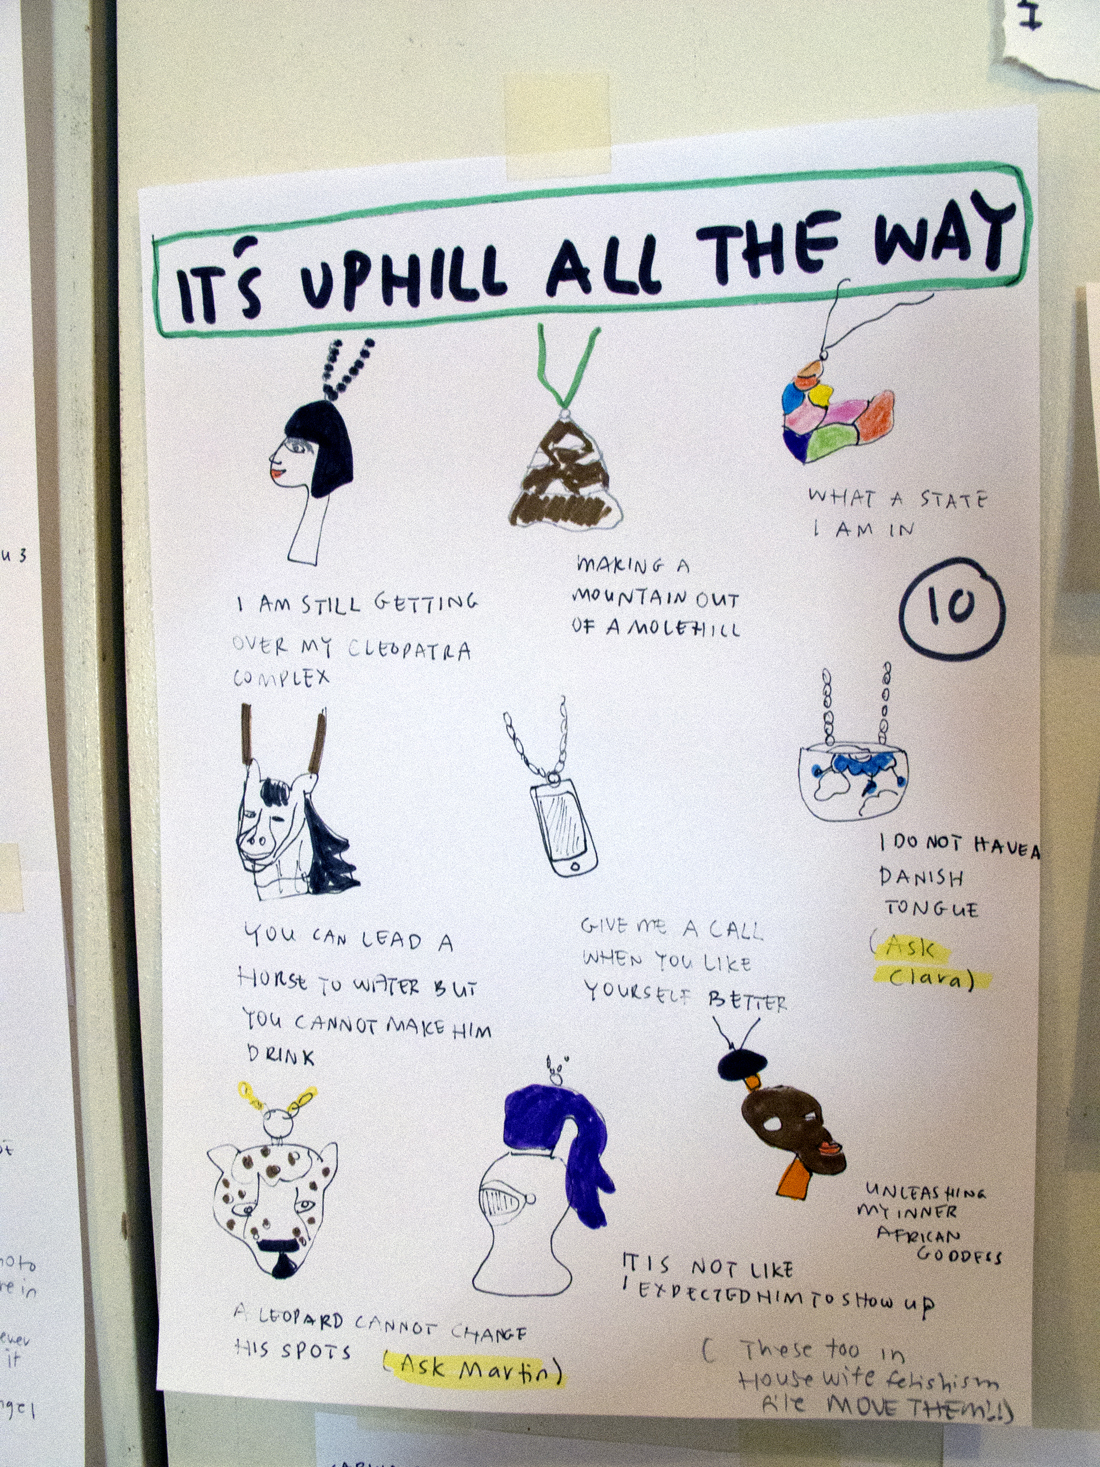 I
IT'S UPHILL ALL THE WAY
WHAT A STATE
I AM IN
MAKING A
MOUNTAIN OUT
OF A MOLEHILL
I AM STILL GETTING
OVER MY CLEOPATRA
COMPLEX
10
I DO NOT HAVE A
DANISH
TONGUE
(Ask
Clara)
YOU CAN LEAD A
HORSE TO WATER BUT
YOU CANNOT MAKE HIM
DRINK
GIVE ME A CALL
WHEN YOU LIKE
YOURSELF BETTER
UNLEASHING
MY INNER
AFRICAN
GODDESS
IT IS NOT LIKE
I EXPECTED HIM TO SHOW UP
A LEOPARD CANNOT CHANGE
HIS SPOTS (Ask Martin)
( These too in
House wife fetishism
file MOVE THEM!!)
u 3
oto
re in
ever
it
ngel